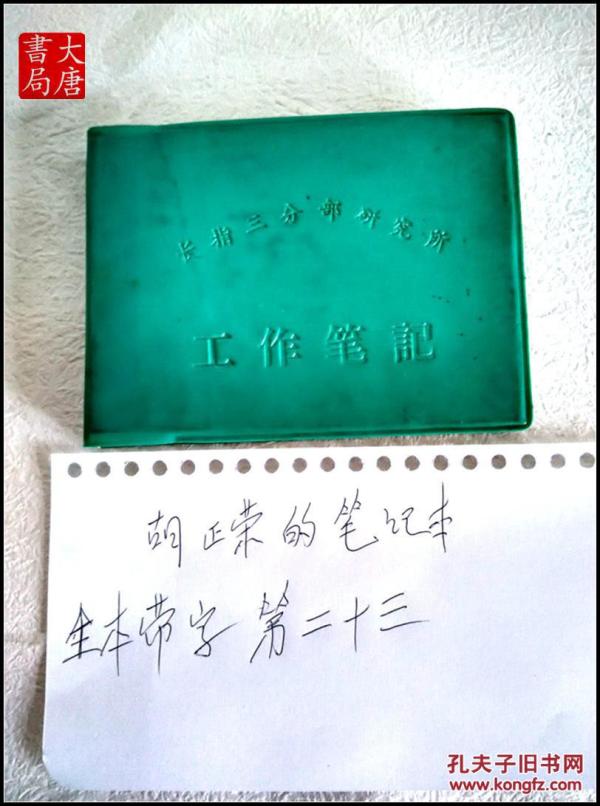 大唐
書局
长指三分部研究所
工作笔記
胡正荣的笔记本
全本带字 第二十三
孔夫子旧书网
www.kongfz.com